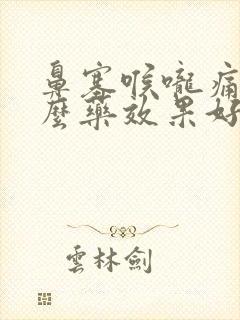 鼻塞喉嚨痛
麼藥效果好
雲林劍